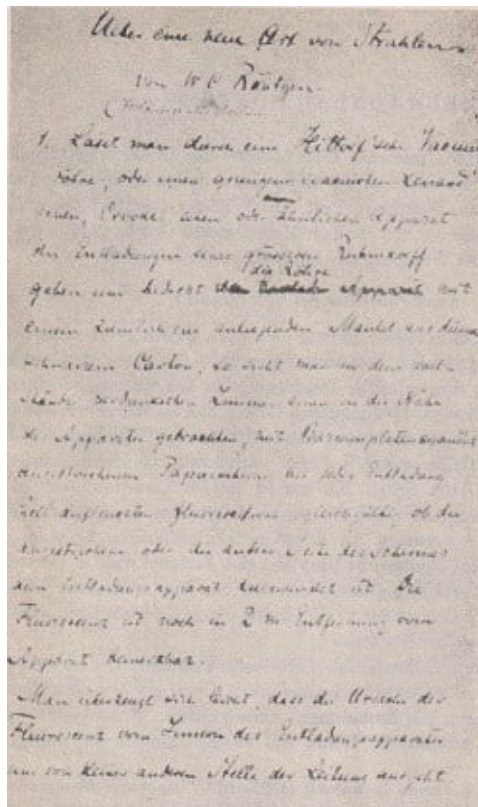 Ueber eine neue Art von Strahlen.
von W C Röntgen.
1. Lässt man durch eine Hittorf'sche Vacuum
röhre, oder einen genügend evacuirten Lenard'
schen, Crookes'schen oder ähnlichen Apparat
die Entladungen eines grösseren Ruhmkorff
die Röhre
gehen und bedeckt Apparat mit
einem ziemlich eng anliegenden Mantel aus dünnem
schwarzem Carton, so sieht man in dem voll-
ständig verdunkelten Zimmer einen in die Nähe
des Apparates gebrachten, mit Bariumplatincyanür
angestrichenen Papierschirm bei jeder Entladung
hell aufleuchten, fluoresciren, gleichgültig ob die
angestrichene oder die andere Seite des Schirmes
dem Entladungsapparat zugewendet ist. Die
Fluorescenz ist noch in 2 m Entfernung vom
Apparat bemerkbar.
Man überzeugt sich leicht, dass die Ursache der
Fluorescenz vom Innern des Entladungsapparates
und von keiner anderen Stelle der Leitung ausgeht.